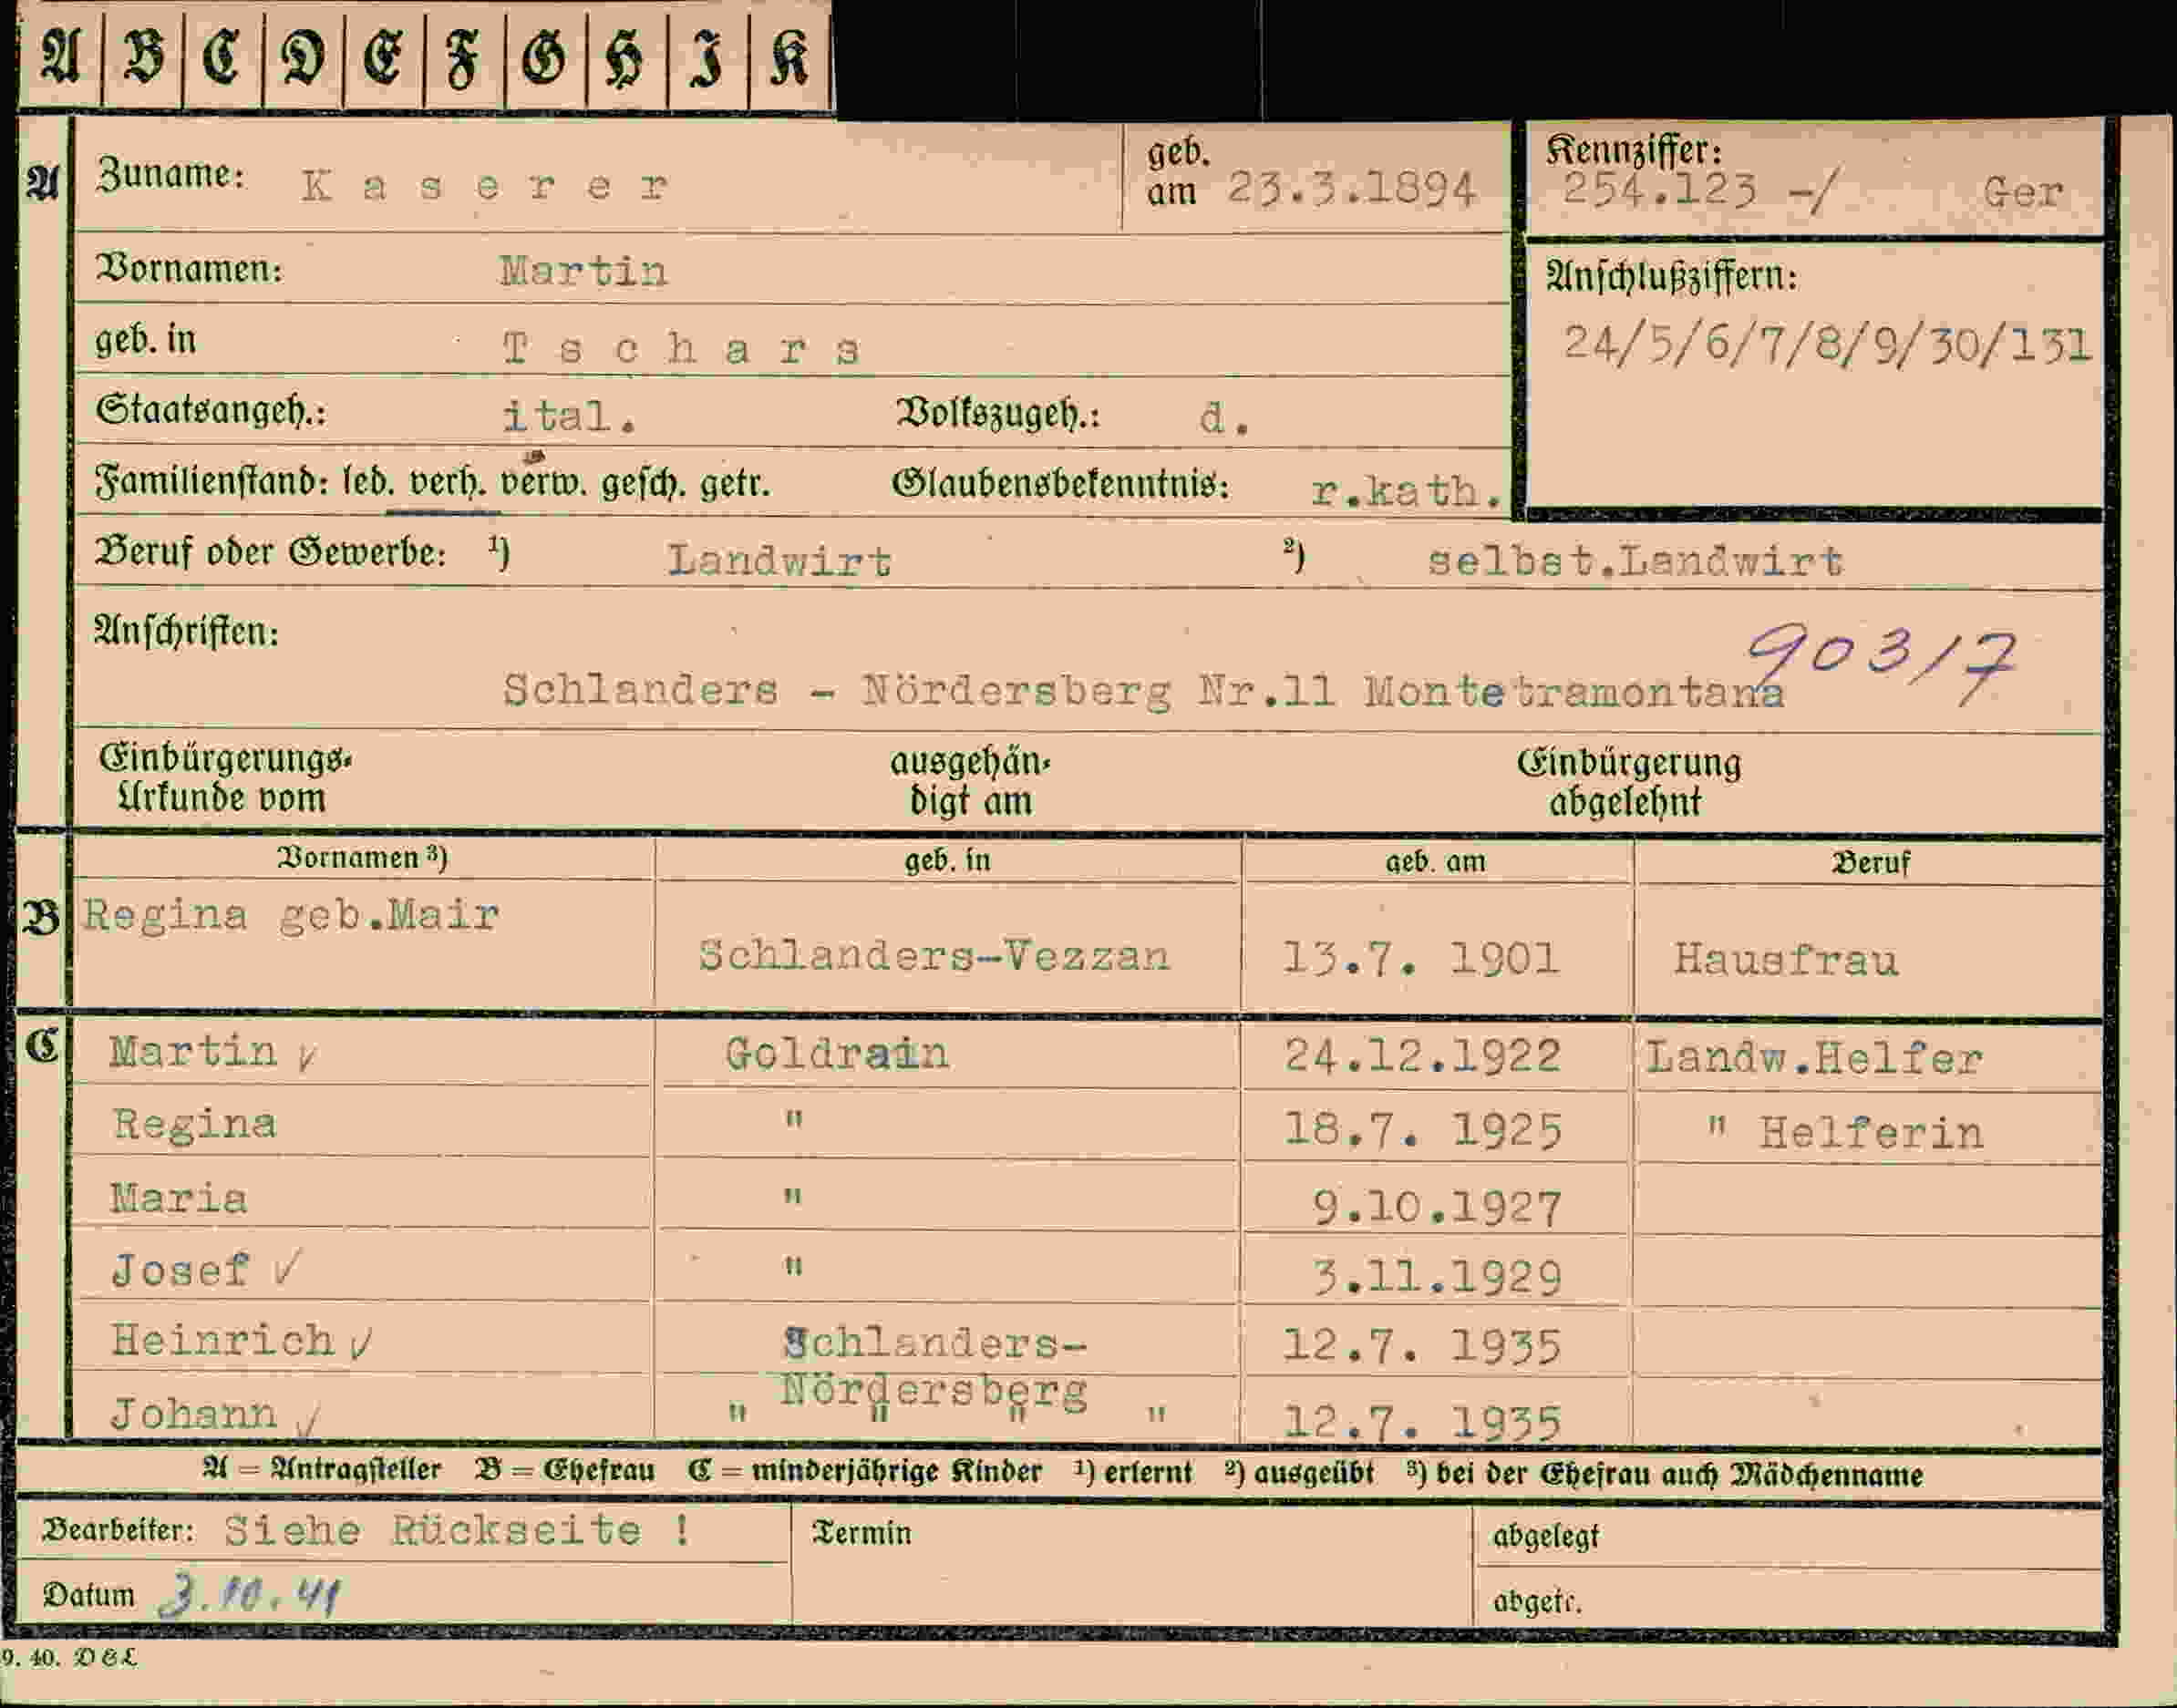 A B C D E F G H I K
A Zuname: Kaserer geb. am 23.3.1894 Kennziffer: 254.123 -/ Ger
Vornamen: Martin Anschlußziffern:
geb. in Tschars 24/5/6/7/8/9/30/131
Staatsangeh.: ital. Volkszugeh.: d.
Familienstand: led. verh. verw. gesch. getr. Glaubensbekenntnis: r.kath.
Beruf oder Gewerbe: ¹) Landwirt ²) selbst.Landwirt
Anschriften: 903/7
Schlanders - Nördersberg Nr.11 Montetramontana
Einbürgerungs- ausgehän- Einbürgerung
Urkunde vom digt am abgelehnt
Vornamen ³) geb. in geb. am Beruf
B Regina geb.Mair
Schlanders-Vezzan 13.7. 1901 Hausfrau
C Martin ✓ Goldrain 24.12.1922 Landw.Helfer
Regina " 18.7. 1925 " Helferin
Maria " 9.10.1927
Josef ✓ " 3.11.1929
Heinrich ✓ Schlanders- 12.7. 1935
Nördersberg
Johann ✓ " " " " 12.7. 1935
A = Antragsteller B = Ehefrau C = minderjährige Kinder ¹) erlernt ²) ausgeübt ³) bei der Ehefrau auch Mädchenname
Bearbeiter: Siehe Rückseite ! Termin abgelegt
Datum 3.10.41 abgetr.
9. 40. D&L